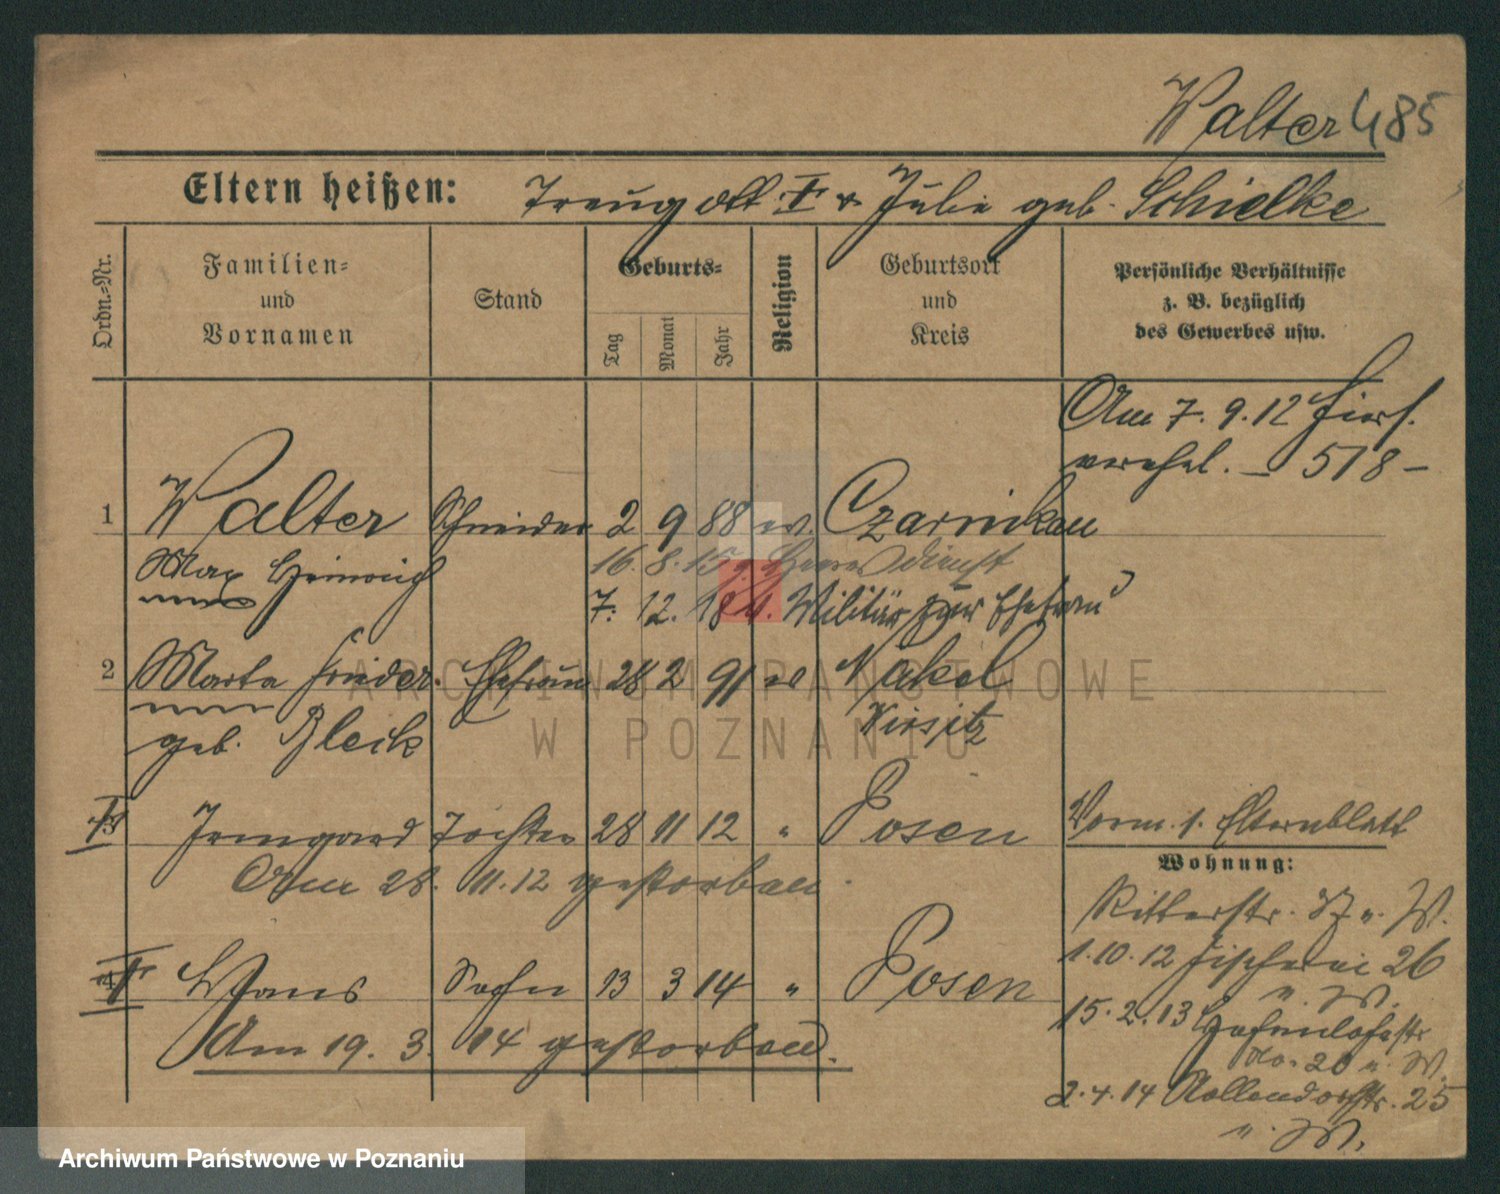 Walter 485
Eltern heißen: Traugott † u. Julie geb. Schielke
Ordn.-Nr.
Familien-
und
Vornamen
Stand
Geburts-
Tag
Monat
Jahr
Religion
Geburtsort
und
Kreis
Persönliche Verhältnisse
z. B. bezüglich
des Gewerbes usw.
Am 7. 9. 12 hier
verehel. — 518 —
1 Walter Schneider 2 9 88 ev. Czarnikau
Max Heinrich 16. 8. 15 Heeresdienst
7. 12. 18 v. Militär zur Ehefrau
2 Marta Frieder. Ehefrau 28 2 91 ev Nakel
geb. Bleck Wirsitz
3 Irmgard Tochter 28 11 12 " Posen
Am 28. 11. 12 gestorben.
4 Hans Sohn 13 3 14 " Posen
Am 19. 3. 14 gestorben.
Verm. s. Elternblatt
Wohnung:
Ritterstr. 37 u. W.
1. 10. 12 Fischerei 26
u. W.
15. 2. 13
No. 20 u. W.
2. 4. 14 Nollendorfstr. 25
u. W.
ARCHIWUM PAŃSTWOWE
W POZNANIU
Archiwum Państwowe w Poznaniu